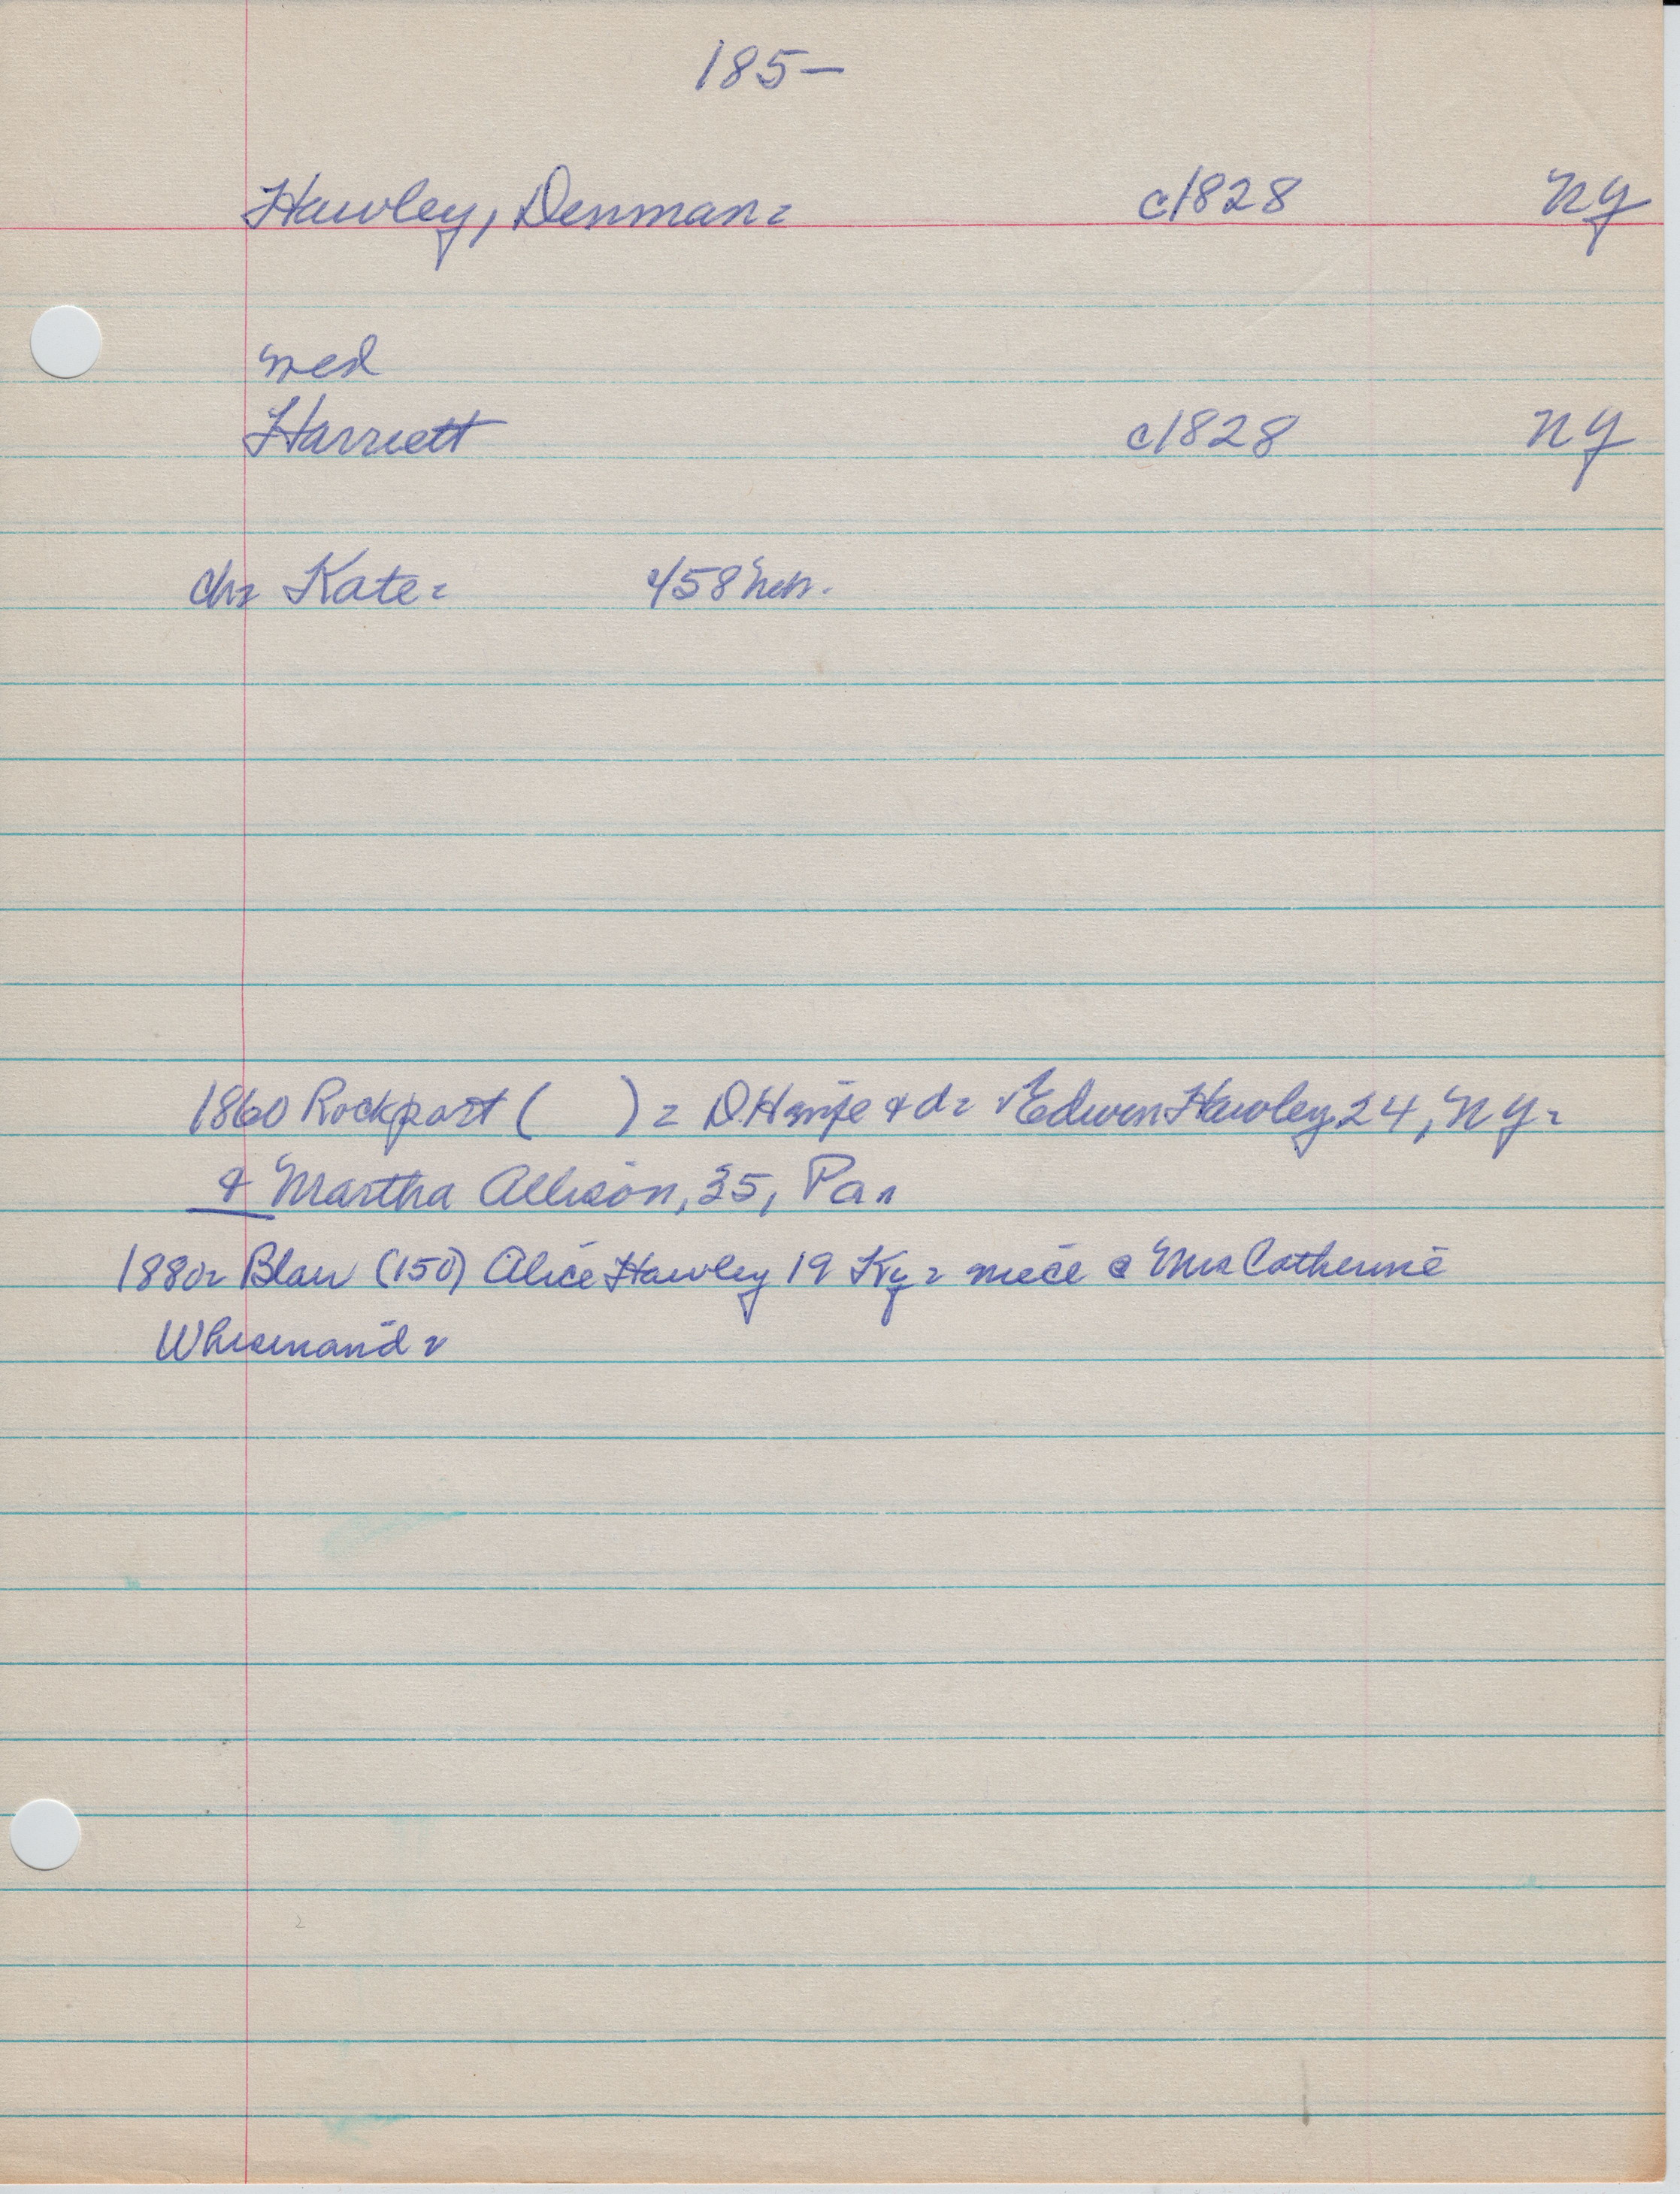 185-
Hawley, Denman= c1828 NY
med
Harriett c1828 NY
ch= Kate=
1860 Rockport ( ) = DH wife & d= Edwin Hawley 24, NY=
& Martha Allison, 35, Pa=
1880= Blair (150) Alice Hawley 19 Ky= niece @ Mrs Catherine
Whisenand=